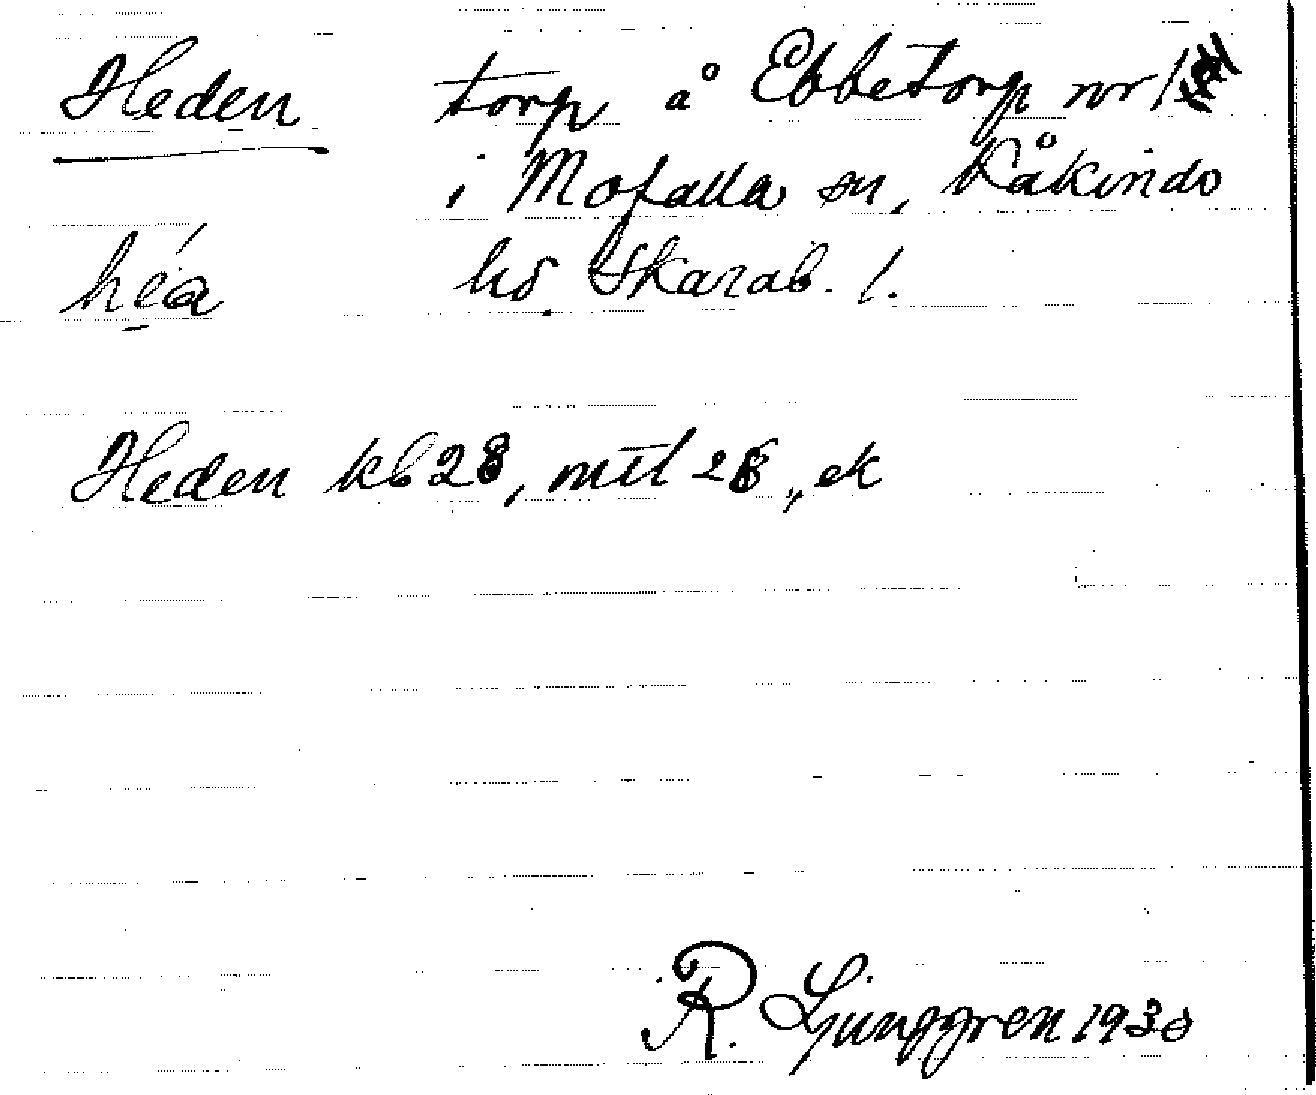 Heden torp å Ebbetorp nr 1
i Mofalla sn, Kåkinds
héa hd Skarab. l.
Heden kb 28, mtl 28, ek
R. Ljunggren 1930